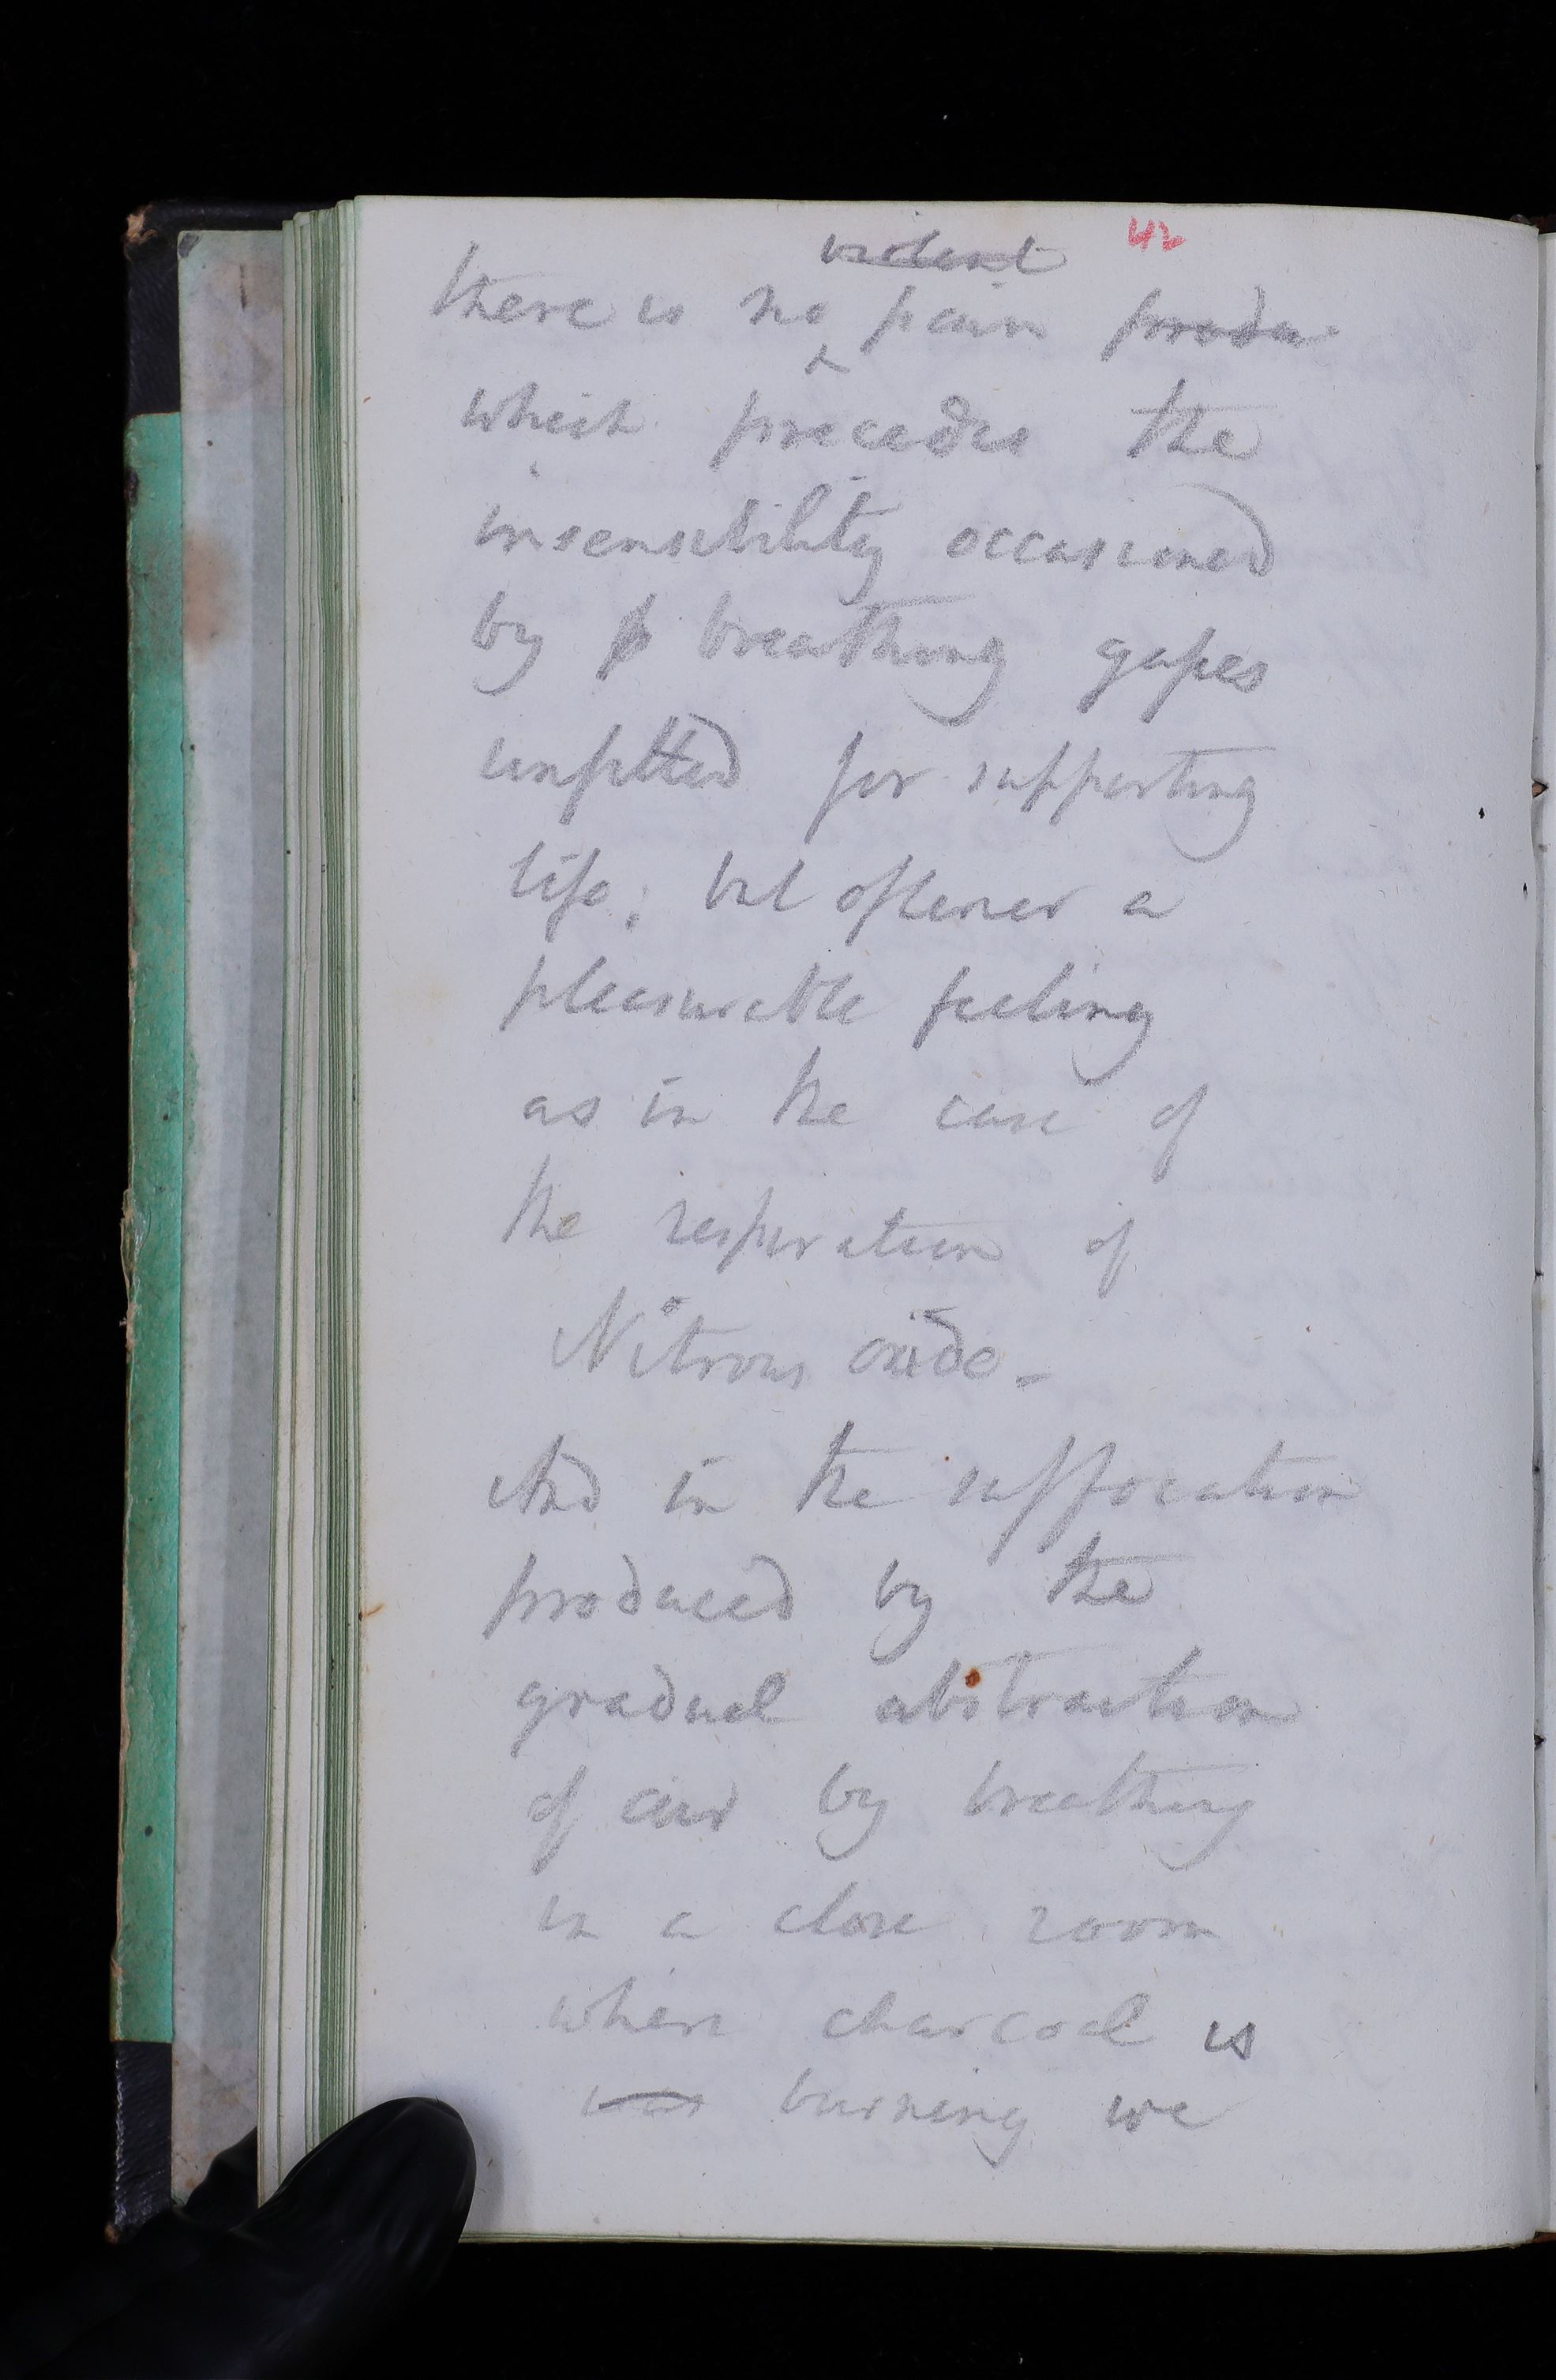 42
violent
there is no pain produ
which precedes the
insensibility occasioned
by p breathing gases
unfitted for supporting
life; but oftener a
pleasurable feeling
as in the case of
the respiration of
Nitrous oxide -
And in the suffocation
produced by the
gradual abstraction
of air by breathing
in a close room
where charcoal is
was burning we